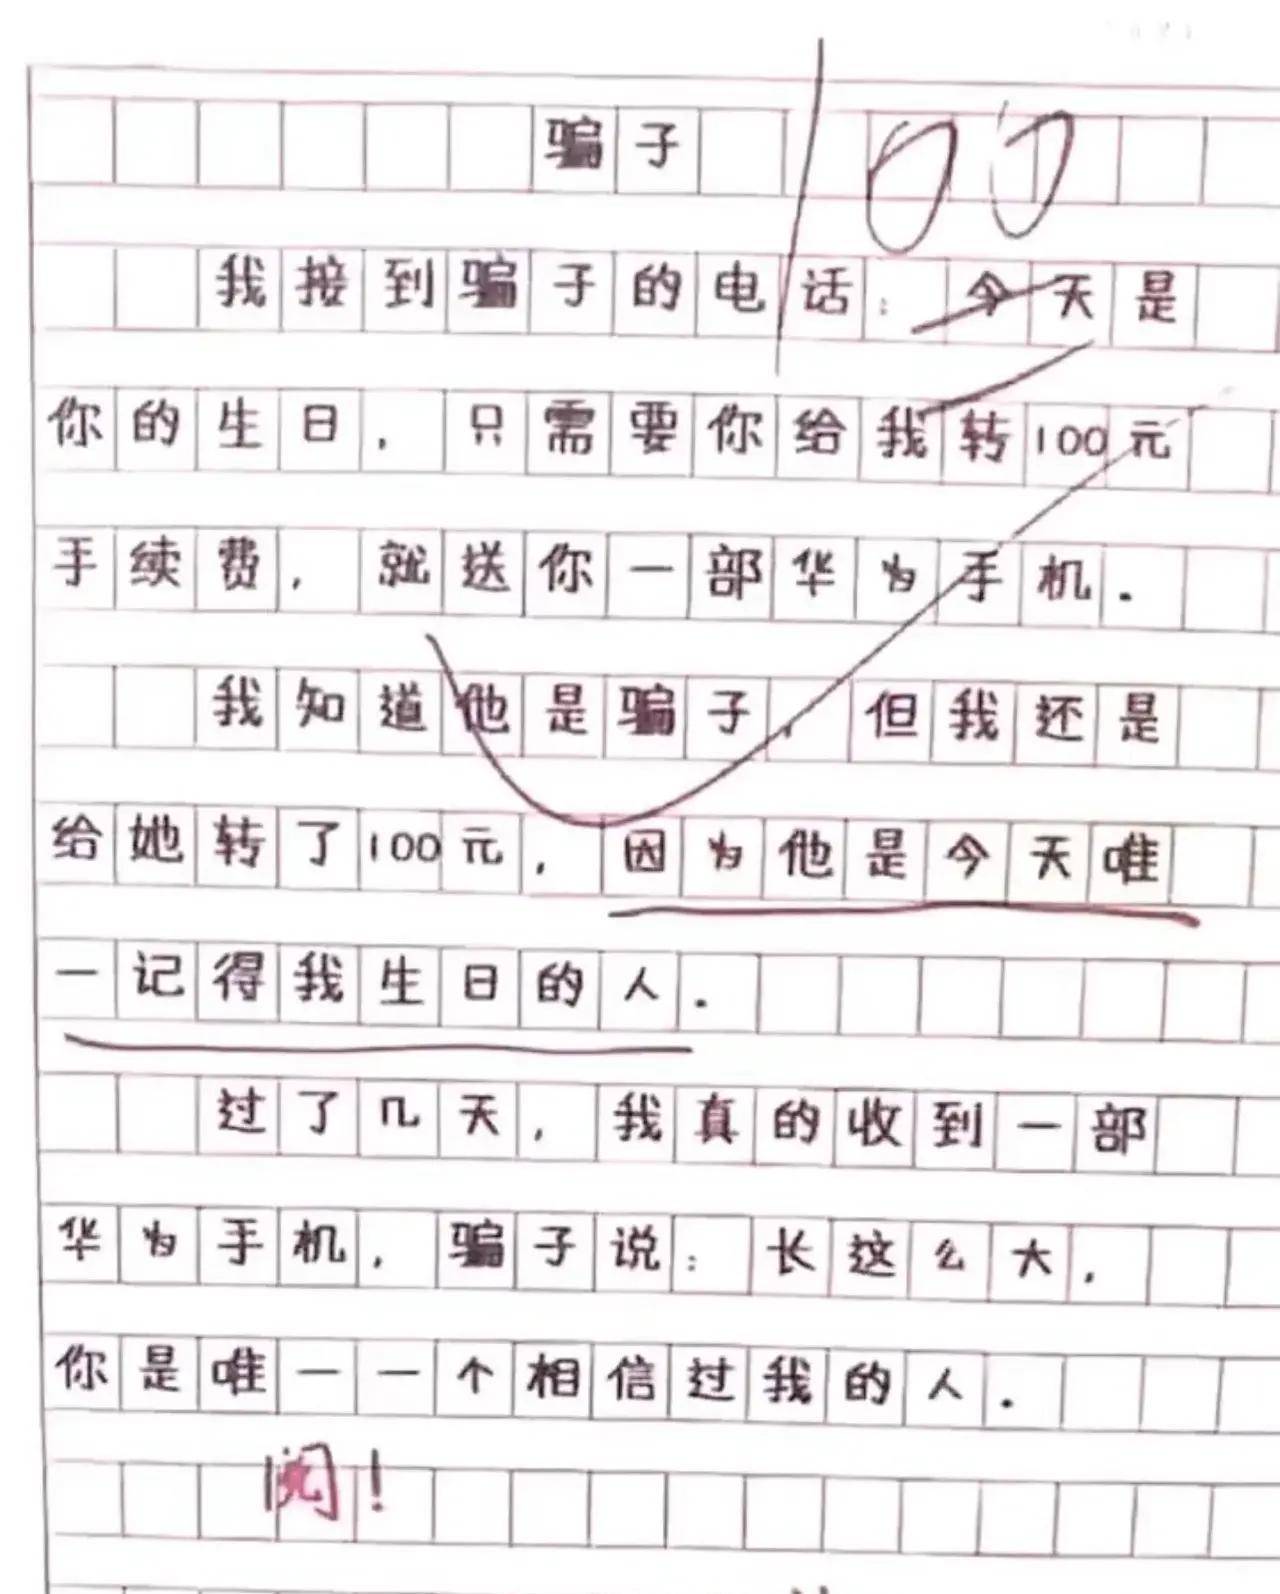 骗子
100
我接到骗子的电话：今天是
你的生日，只需要你给我转100元
手续费，就送你一部华为手机.
我知道他是骗子，但我还是
给她转了100元，因为他是今天唯
一记得我生日的人.
过了几天，我真的收到一部
华为手机，骗子说：长这么大，
你是唯一一个相信过我的人.
阅！